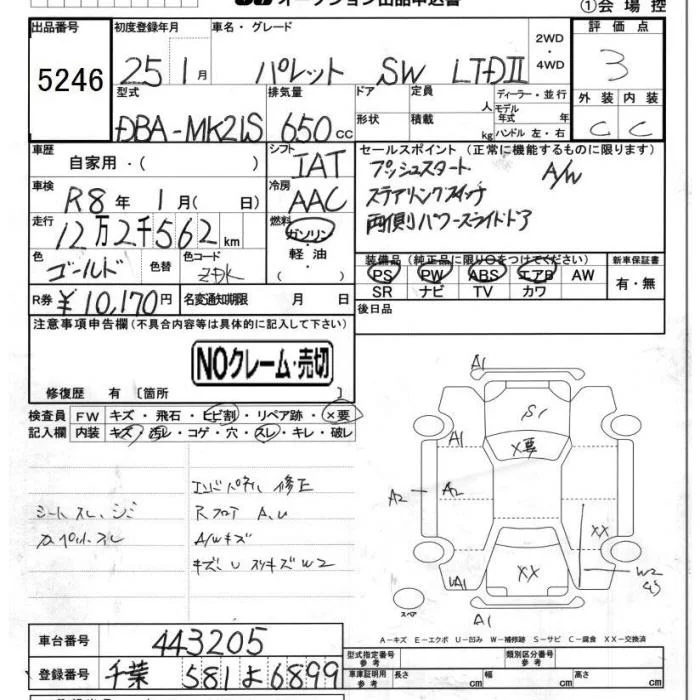 ①会場控
出品番号 初度登録年月 車名・グレード 評価点
5246 25 1月 パレット SW LTDⅡ 2WD・4WD 3
型式 排気量 ドア 定員 人 ディーラー・並行 外装 内装
DBA-MK21S 650cc 形状 積載 kg モデル年式 年 ハンドル 左・右 C C
車歴 自家用・( ) シフト IAT セールスポイント (正常に機能するものに限ります)
プッシュスタート A/W
車検 R8年 1月( 日) 冷房 AAC ステアリングスイッチ
両側パワースライドドア
走行 12万2千562km 燃料 ガソリン・軽油・( )
色 ゴールド 色替 色コード ZDK
装備品 (純正品に限り○をつけてください) 新車保証書
PS PW ABS エアB AW 有・無
SR ナビ TV カワ
R券 ¥10,170円 名変通知期限 月 日 後日品
注意事項申告欄(不具合内容等は具体的に記入して下さい)
NOクレーム・売切
修復歴 有 [箇所 ]
検査員 FW キズ・飛石・ヒビ割・リペア跡・×要
記入欄 内装 キズ・汚レ・コゲ・穴・スレ・キレ・破レ
エンドパネル 修正
シート スレ、シミ Rフロア A、U
カーペット スレ A/Wキズ
キズ、U スリキズ W2
A1
S1
A1 ×要
A2 A2
XX
XX W2
A1
A1
スペア
A-キズ E-エクボ U-凹み W-補修跡 S-サビ C-腐食 XX-交換済
車台番号 443205
型式指定番号 参考 類別区分番号 参考
登録番号 千葉 581 よ 6899 車庫証明用 参考 長さ cm 幅 cm 高さ cm